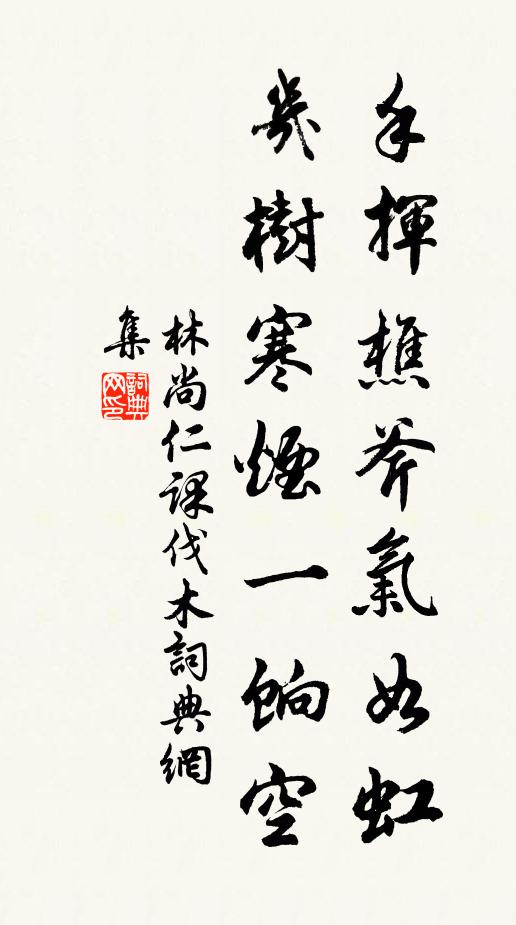 手揮樵斧氣如虹
幾樹寒煙一餉空
林尚仁課伐木詞典網
集
詞典
网印